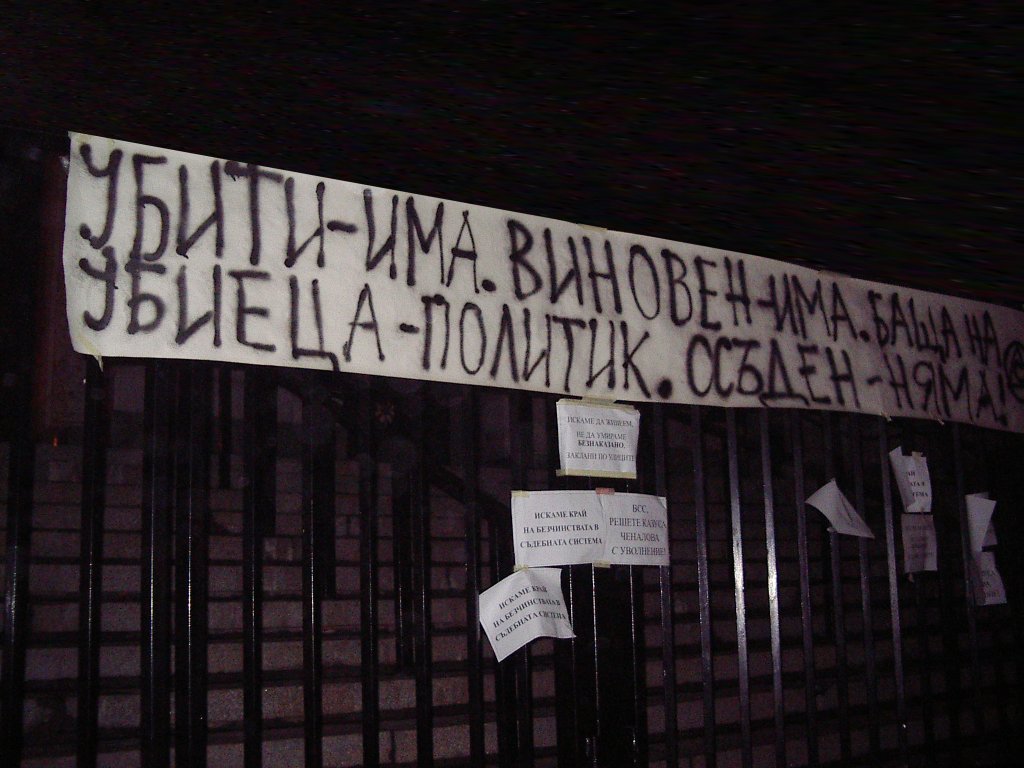 УБИТИ-ИМА. ВИНОВЕН-ИМА. БАЩА НА
УБИЕЦА-ПОЛИТИК. ОСЪДЕН-НЯМА!
ИСКАМЕ ДА ЖИВЕЕМ,
НЕ ДА УМИРАМЕ
БЕЗНАКАЗАНО,
ЗАКЛАНИ ПО УЛИЦИТЕ
ИСКАМЕ КРАЙ
НА БЕЗЧИНСТВАТА В
СЪДЕБНАТА СИСТЕМА
ВСС,
РЕШЕТЕ КАЗУСА
ЧЕНАЛОВА
С УВОЛНЕНИЕ!
ИСКАМЕ КРАЙ
НА БЕЗЧИНСТВАТА В
СЪДЕБНАТА СИСТЕМА